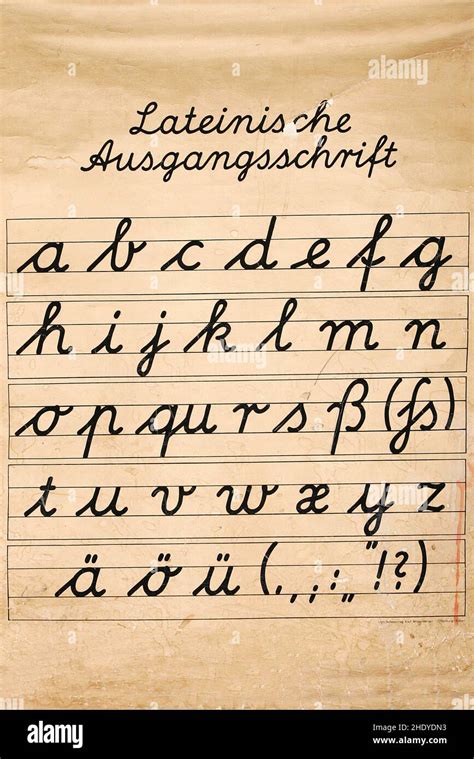 Lateinische
Ausgangsschrift
a b c d e f g
h i j k l m n
o p qu r s ß (ſs)
t u v w x y z
ä ö ü (. , ; : „ " ! ?)
alamy
Image ID: 2HDYDN3
www.alamy.com